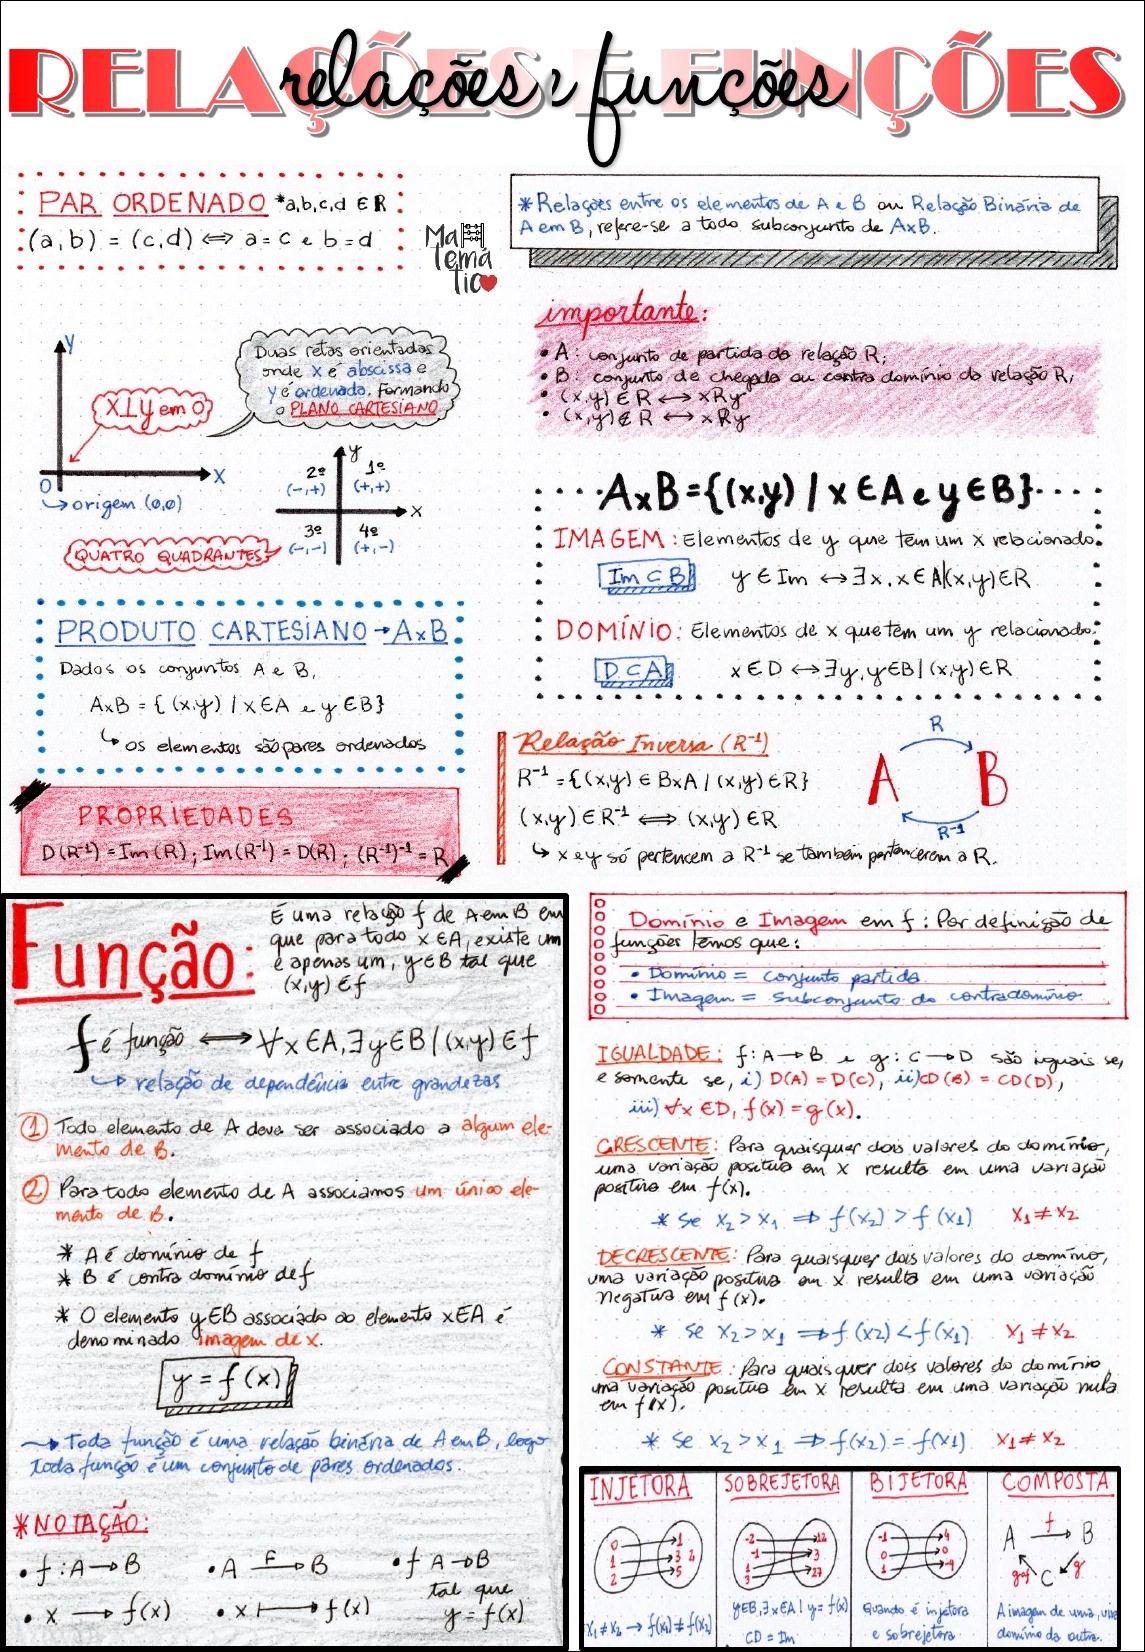 RELAÇÕES E FUNÇÕES
relações e funções
PAR ORDENADO *a,b,c,d ∈ R
(a,b) = (c,d) ⟺ a=c e b=d
Ma
temá
tica
*Relações entre os elementos de A e B ou Relação Binária de
A em B, refere-se a todo subconjunto de AxB.
importante:
• A: conjunto de partida da relação R;
• B: conjunto de chegada ou contra domínio da relação R;
• (x,y) ∈ R ⟷ xRy
• (x,y) ∉ R ⟷ xR̸y
y
Duas retas orientadas
onde x é abscissa e
y é ordenada, formando
o PLANO CARTESIANO
X⊥y em O
X
O
↳ origem (0,0)
y
2º 1º
(-,+) (+,+)
x
3º 4º
(-,-) (+,-)
QUATRO QUADRANTES
AxB={(x,y) / x∈A e y∈B}
IMAGEM: Elementos de y que têm um x relacionado.
Im ⊂ B y ∈ Im ⟷ ∃x, x∈A|(x,y)∈R
DOMÍNIO: Elementos de x que têm um y relacionado.
D ⊂ A x∈D ⟷ ∃y, y∈B | (x,y)∈R
PRODUTO CARTESIANO → AxB
Dados os conjuntos A e B,
AxB = { (x,y) / x∈A e y∈B}
↳ os elementos são pares ordenados
Relação Inversa (R⁻¹)
R⁻¹={(x,y) ∈ BxA / (x,y)∈R}
(x,y)∈R⁻¹ ⟺ (x,y)∈R
↳ x e y só pertencem a R⁻¹ se também pertencerem a R.
R
A B
R⁻¹
PROPRIEDADES
D(R⁻¹)=Im(R); Im(R⁻¹)=D(R); (R⁻¹)⁻¹=R
Função:
É uma relação f de A em B em
que para todo x∈A, existe um
e apenas um, y∈B tal que
(x,y)∈f
f é função ⟺ ∀x∈A,∃y∈B|(x,y)∈f
↳ relação de dependência entre grandezas
1 Todo elemento de A deve ser associado a algum ele-
mento de B.
2 Para todo elemento de A associamos um único ele-
mento de B.
* A é domínio de f
* B é contra domínio de f
* O elemento y∈B associado ao elemento x∈A é
denominado imagem de x.
y=f(x)
→ Toda função é uma relação binária de A em B, logo
toda função é um conjunto de pares ordenados.
*NOTAÇÃO:
• f:A→B • A F→ B • f A→B
tal que
• x → f(x) • x ⟼ f(x) y=f(x)
Domínio e Imagem em f: Por definição de
funções temos que:
• Domínio = conjunto partida
• Imagem = subconjunto do contradomínio
IGUALDADE: f:A→B e g:C→D são iguais se,
e somente se, i) D(A)=D(C), ii) CD(B)=CD(D),
iii) ∀x∈D, f(x)=g(x).
CRESCENTE: Para quaisquer dois valores do domínio,
uma variação positiva em x resulta em uma variação
positiva em f(x).
* Se x₂>x₁ ⇒ f(x₂)>f(x₁) x₁≠x₂
DECRESCENTE: Para quaisquer dois valores do domínio,
uma variação positiva em x resulta em uma variação
negativa em f(x).
* Se x₂>x₁ ⇒ f(x₂)<f(x₁) x₁≠x₂
CONSTANTE: Para quaisquer dois valores do domínio,
uma variação positiva em x resulta em uma variação nula
em f(x).
* Se x₂>x₁ ⇒ f(x₂)=f(x₁) x₁≠x₂
INJETORA
0 1
1 3 2
2 5
x₁≠x₂ → f(x₁)≠f(x₂)
SOBREJETORA
-2 12
-1 3
1
3 27
y∈B,∃x∈A|y=f(x)
CD=Im
BIJETORA
-1 4
0 0
1 -4
Quando é injetora
e sobrejetora
COMPOSTA
f
A → B
gof C g
A imagem de uma, vira
domínio da outra.